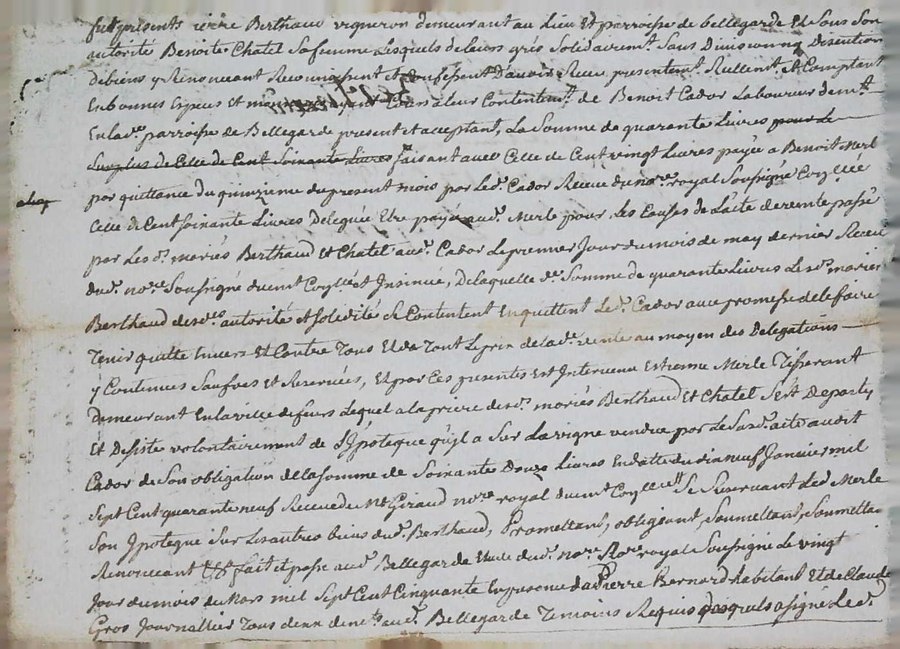 fut présents pierre Berthaud vigneron demeurant au lieu Et parroisse de bellegarde Et sous son
autorité Benoite Chatel sa femme Lesquels de leurs grés solidairemt. sans Division ny Discution
de biens y Renonceant Reconnoissent et Confessent D'avoir Receu presentemt. Rellemt. et Comptant
En bonnes Especes et à leur Contentemt. de Benoit Cador Laboureur demt.
En lade. parroisse de Bellegarde present et acceptant, La somme de quarante Livres pour le
surplus de Celle de Cent soixante Livres faisant avec Celle de Cent vingt Livres payée a Benoit Merle
por quittance du quinzieme du present mois par led. Cador Receue du nore. royal soussigné Coyllée
Celle de Cent soixante Livres Deleguée Etre payée aud. Merle pour les Causes de L'acte de vente passé
par les d. mariés Berthaud Et Chatel aud. Cador le premier Jour du mois de may dernier Receu
dud. nore. soussigné duemt Coyllé et Insinué, De laquelle de. somme de quarante Livres les d. mariés
Berthaud desdes. autorité et solidité se Contentent En quittent led. Cador avec promesse de le faire
Tenir quitte Envers Et Contre Tous Et de Tout Le prix de lade. vente au moyen des Delegations
y Contenues saufves et Reservées, Et par Ces presentes Est Intervenu Estienne Merle Tisserant
demeurant En la ville de feurs Lequel a la priere desd. mariés Berthaud Et Chatel s'est Departy
Et Desisté volontairement de L'ypoteque qu'il a sur La vigne vendue par le susd. acte audit
Cador de son obligation de la somme de soixante Douze Livres En datte du dix neuf Janvier mil
sept Cent quarante neuf Receue de Me Giraud nore. royal duemt Coyllée se Reservant led. Merle
son Ypoteque sur les autres biens dud. Berthaud, Promettant, obligeant, soumettant,
Renonceant fait et passé aud. Bellegarde Etude dud. nore. royal soussigné le vingt
Jour du mois de Mars mil sept Cent Cinquante En presence de Pierre Bernard habitant Et de Claude
Gros Journallier Tous deux demts. aud. Bellegarde Temoins Requis desquels a signé led.